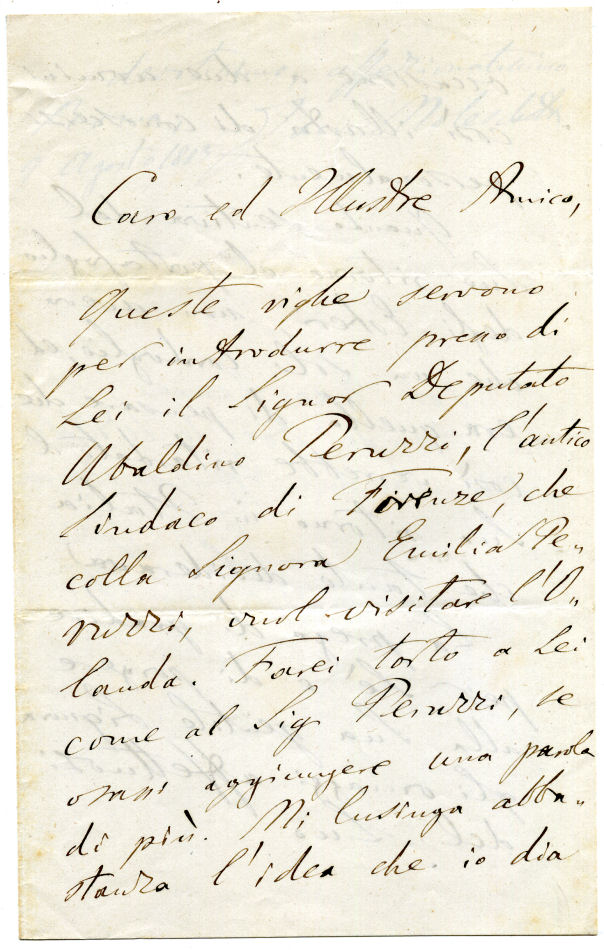 Caro ed Illustre Amico,
Queste righe servono
per introdurre presso di
Lei il Signor Deputato
Ubaldino Peruzzi, l'antico
Sindaco di Firenze, che
colla Signora Emilia Pe-
ruzzi, vuol visitare l'O-
landa. Farei torto a Lei
come al Sig. Peruzzi, se
osassi aggiungere una parola
di più. Mi lusinga abba-
stanza l'idea che io dia